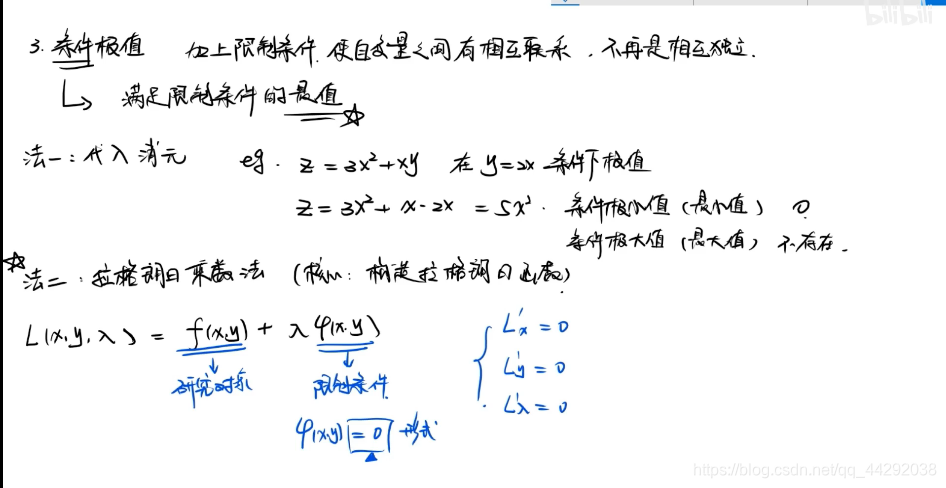 bilibili
3. 条件极值 加上限制条件,使自变量之间有相互联系,不再是相互独立.
↳ 满足限制条件的最值 ☆
法一:代入消元 eg. z = 3x²+xy 在 y=2x 条件下极值
z = 3x²+ x·2x = 5x². 条件极小值(最小值) 0.
条件极大值(最大值) 不存在.
☆法二:拉格朗日乘数法 (核心:构造拉格朗日函数)
L(x,y,λ) = f(x,y) + λφ(x,y)
研究对象 限制条件
φ(x,y) = 0 形式
L'x = 0
L'y = 0
L'λ = 0
https://blog.csdn.net/qq_44292038